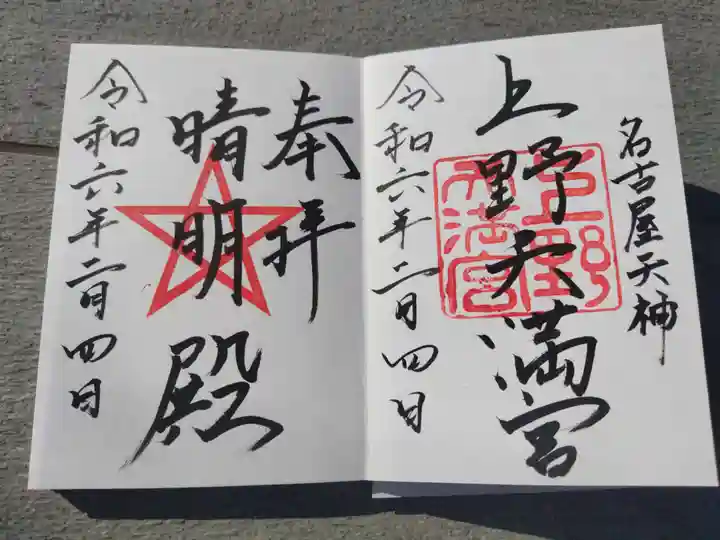 名古屋天神
上野天満宮
上野天満宮
令和六年二月四日
奉拝
晴明殿
令和六年二月四日